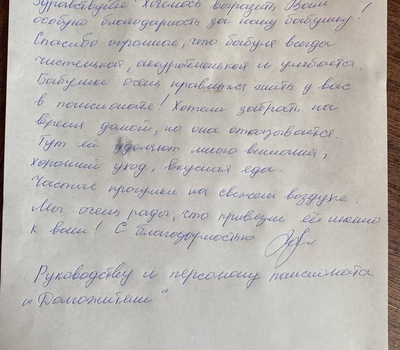 Здравствуйте! Хотелось выразить Вам
особую благодарность за нашу бабушку!
Спасибо огромное, что бабуля всегда
чистенькая, аккуратненькая и улыбается.
Бабушке очень нравится жить у вас
в пансионате! Хотели забрать на
время домой, но она отказывается.
Тут ей уделяют много внимания,
хороший уход, вкусная еда.
Частые прогулки на свежем воздухе.
Мы очень рады, что привезли её именно
к вам! С благодарностью
Руководству и персоналу пансионата
"Долгожители"